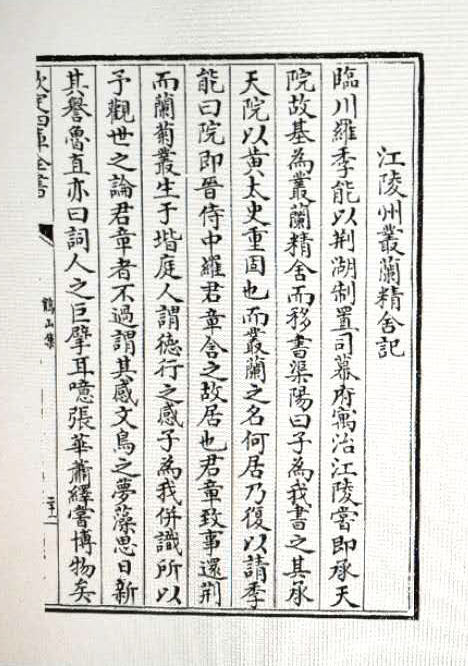 江陵州叢蘭精舍記
臨川羅季能以荆湖制置司幕府寓治江陵嘗即承天
院故基為叢蘭精舍而移書渠陽曰子為我書之其承
天院以黄太史重固也而叢蘭之名何居乃復以請季
能曰院即晉侍中羅君章含之故居也君章致事還荆
而蘭菊叢生于堦庭人謂德行之感子為我併識所以
予觀世之論君章者不過謂其感文鳥之夢藻思日新
其譽魯直亦曰詞人之巨擘耳噫張華蕭繹嘗博物矣
欽定四庫全書
鶴山集